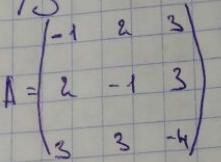 -1 2 3
A = 2 -1 3
3 3 -4